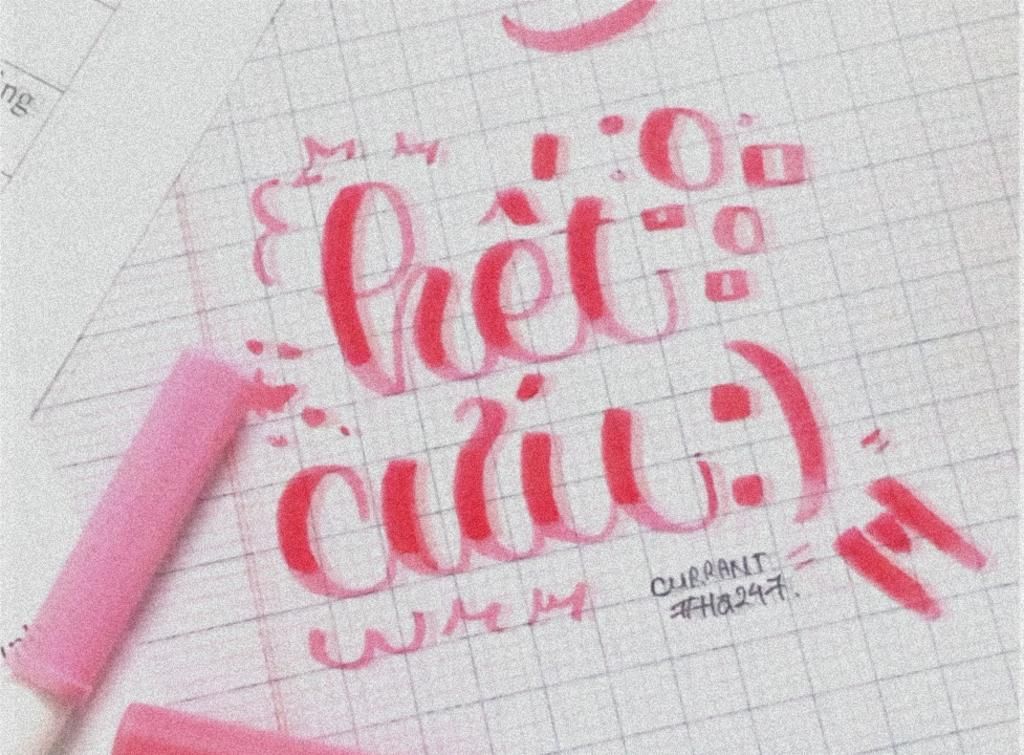 ng
hết
cứu :)
CURRANT
#Ha247.